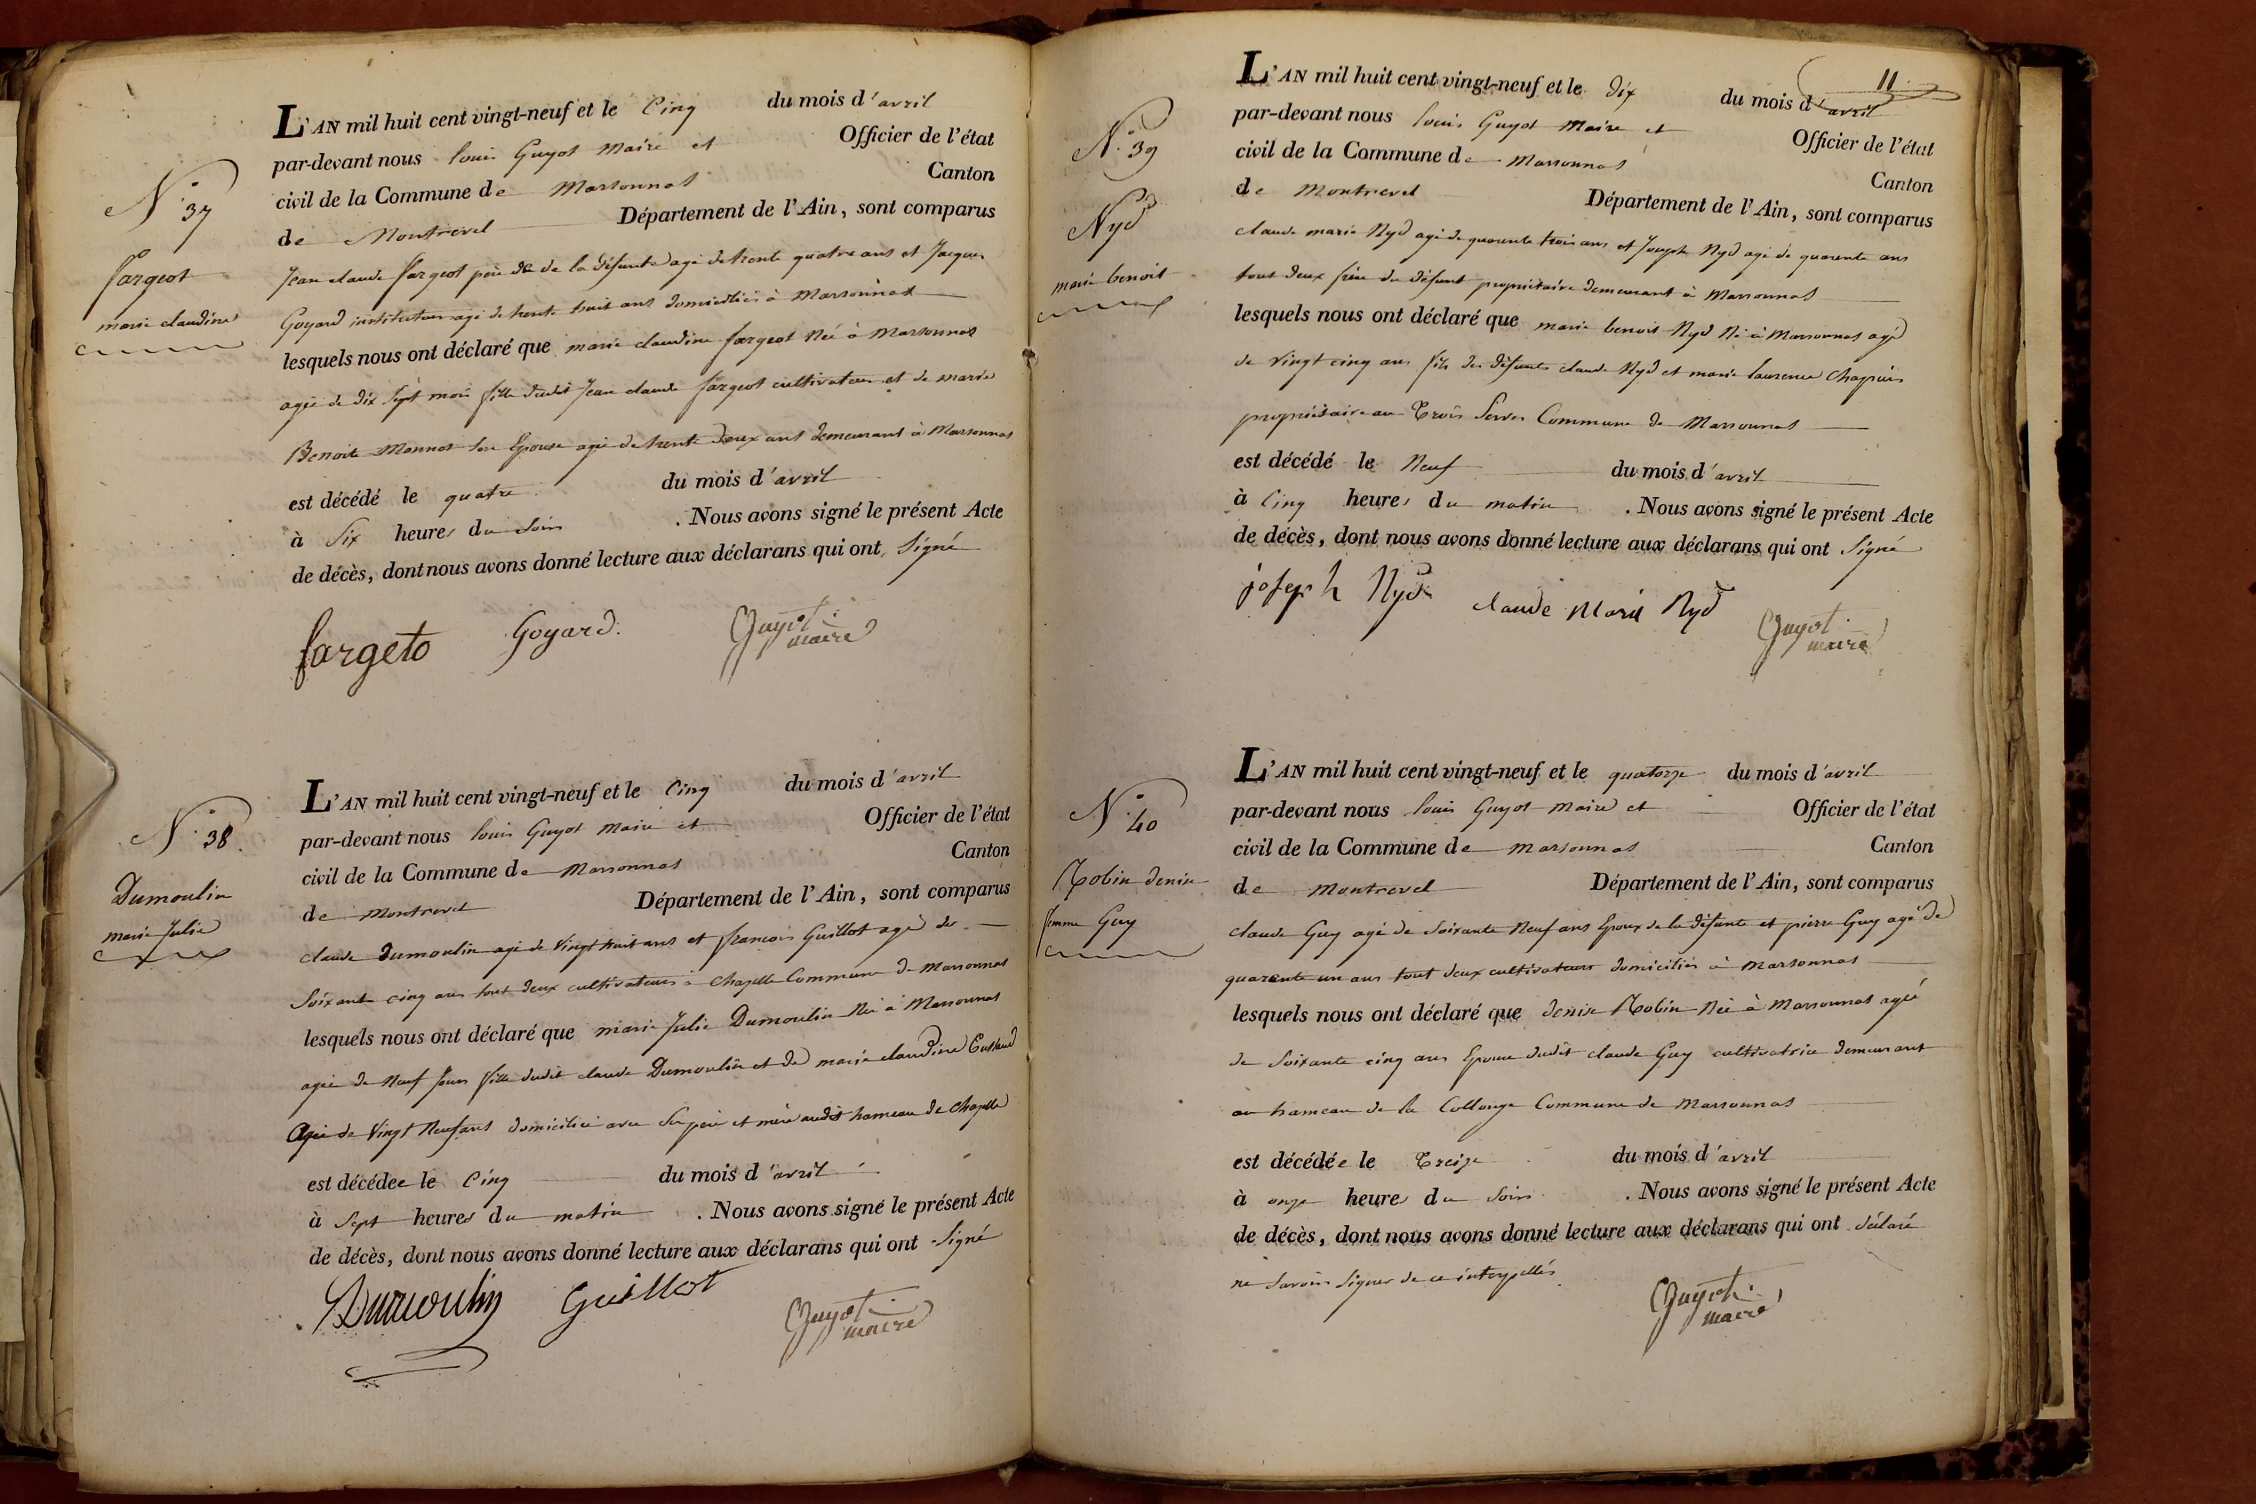 N.° 37
fargeot
marie claudine
L'AN mil huit cent vingt-neuf et le Cinq du mois d'avril
par-devant nous louis Guyot Maire et Officier de l'état
civil de la Commune de Marsonnas Canton
de Montrevel Département de l'Ain, sont comparus
Jean claude fargeot père de la défunte agé de trente quatre ans et Jacques
Goyard instituteur agé de trente huit ans domiciliés à Marsonnas
lesquels nous ont déclaré que marie claudine fargeot Née à Marsonnas
agée de dix Sept mois fille dudit Jean claude fargeot cultivateur et de marie
Benoite Monnot son Epouse agée de trente deux ans demeurant à Marsonnas
est décédé le quatre du mois d'avril
à Six heures du Soir . Nous avons signé le présent Acte
de décès, dont nous avons donné lecture aux déclarans qui ont Signé
fargeto Goyard. Guyot
maire
N.° 38.
Dumoulin
marie Julie
L'AN mil huit cent vingt-neuf et le Cinq du mois d'avril
par-devant nous louis Guyot Maire et Officier de l'état
civil de la Commune de Marsonnas Canton
de Montrevel Département de l'Ain, sont comparus
claude Dumoulin agé de Vingt huit ans et françois Guillot agé de
Soixante cinq ans tout deux cultivateurs à Chapelle Commune de Marsonnas
lesquels nous ont déclaré que marie Julie Dumoulin Née à Marsonnas
agée de Neuf Jours fille dudit claude Dumoulin et de marie claudine
Agée de Vingt Neuf ans domiciliée avec Ses père et mère audit hameau de Chapelle
est décédée le Cinq du mois d'avril
à Sept heures du matin . Nous avons signé le présent Acte
de décès, dont nous avons donné lecture aux déclarans qui ont Signé
Dumoulin Guillot Guyot
maire
11
N.° 39
Nyd
marie benoit
L'AN mil huit cent vingt-neuf et le dix du mois d'avril
par-devant nous louis Guyot Maire et Officier de l'état
civil de la Commune de Marsonnas Canton
de Montrevel Département de l'Ain, sont comparus
claude marie Nyd agé de quarente trois ans et Joseph Nyd agé de quarente ans
tout deux frère du défunt propriétaire demeurant à Marsonnas
lesquels nous ont déclaré que marie benoit Nyd Né à Marsonnas agé
de Vingt cinq ans fils des défunts claude Nyd et marie laurence Chapuis
propriétaire au Trois Serves Commune de Marsonnas
est décédé le Neuf du mois d'avril
à Cinq heures du matin . Nous avons signé le présent Acte
de décès, dont nous avons donné lecture aux déclarans qui ont Signé
joseph Nyd claude Marie Nyd Guyot
maire
N.° 40
Robin denise
femme Guy
L'AN mil huit cent vingt-neuf et le quatorze du mois d'avril
par-devant nous louis Guyot Maire et Officier de l'état
civil de la Commune de Marsonnas Canton
de Montrevel Département de l'Ain, sont comparus
claude Guy agé de Soixante Neuf ans Epoux de la défunte et pierre Guy agé de
quarente un ans tout deux cultivateurs domiciliés à Marsonnas
lesquels nous ont déclaré que denise Robin Née à Marsonnas agée
de Soixante cinq ans Epouse dudit claude Guy cultivatrice demeurant
au hameau de la Collonge Commune de Marsonnas
est décédée le Treize du mois d'avril
à onze heures du Soir . Nous avons signé le présent Acte
de décès, dont nous avons donné lecture aux déclarans qui ont déclaré
ne Savoir Signer de ce interpellés
Guyot
maire